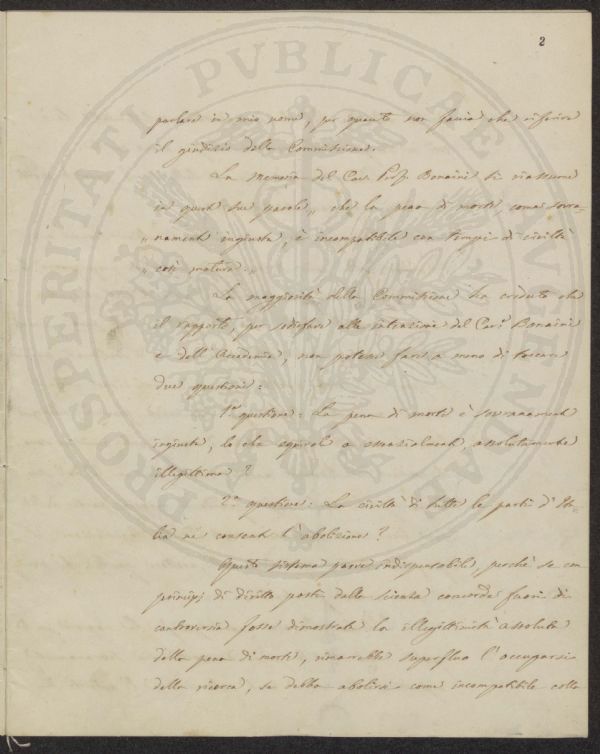 2
parlare in mio nome, per quanto non faccia che riferire
il giudizio della Commissione.
La Memoria del Cav. Prof. Bonaini si riassume
in queste sue parole „ che la pena di morte, come sovra-
„ namente ingiusta, è incompatibile con tempi di civiltà
„ così matura. „
La maggiorità della Commissione ha creduto che
il rapporto, per sodisfare alle intenzioni del Cav.e Bonaini
e dell'Accademia, non potesse fare a meno di toccare
due questioni:
1a questione: La pena di morte è sovranamente
ingiusta, lo che equivale a essenzialmente, assolutamente
illegittima?
2a questione: La civiltà di tutte le parti d'Ita-
lia ne consente l'abolizione?
Questo sistema parve indispensabile, perchè se con
principj di diritto posti dalla scienza concorde fuori di
controversia fosse dimostrata la illegittimità assoluta
della pena di morte, rimarrebbe superfluo l'occuparsi
della ricerca, se debba abolirsi come incompatibile colla
PROSPERITATI PVBLICAE AVGENDAE